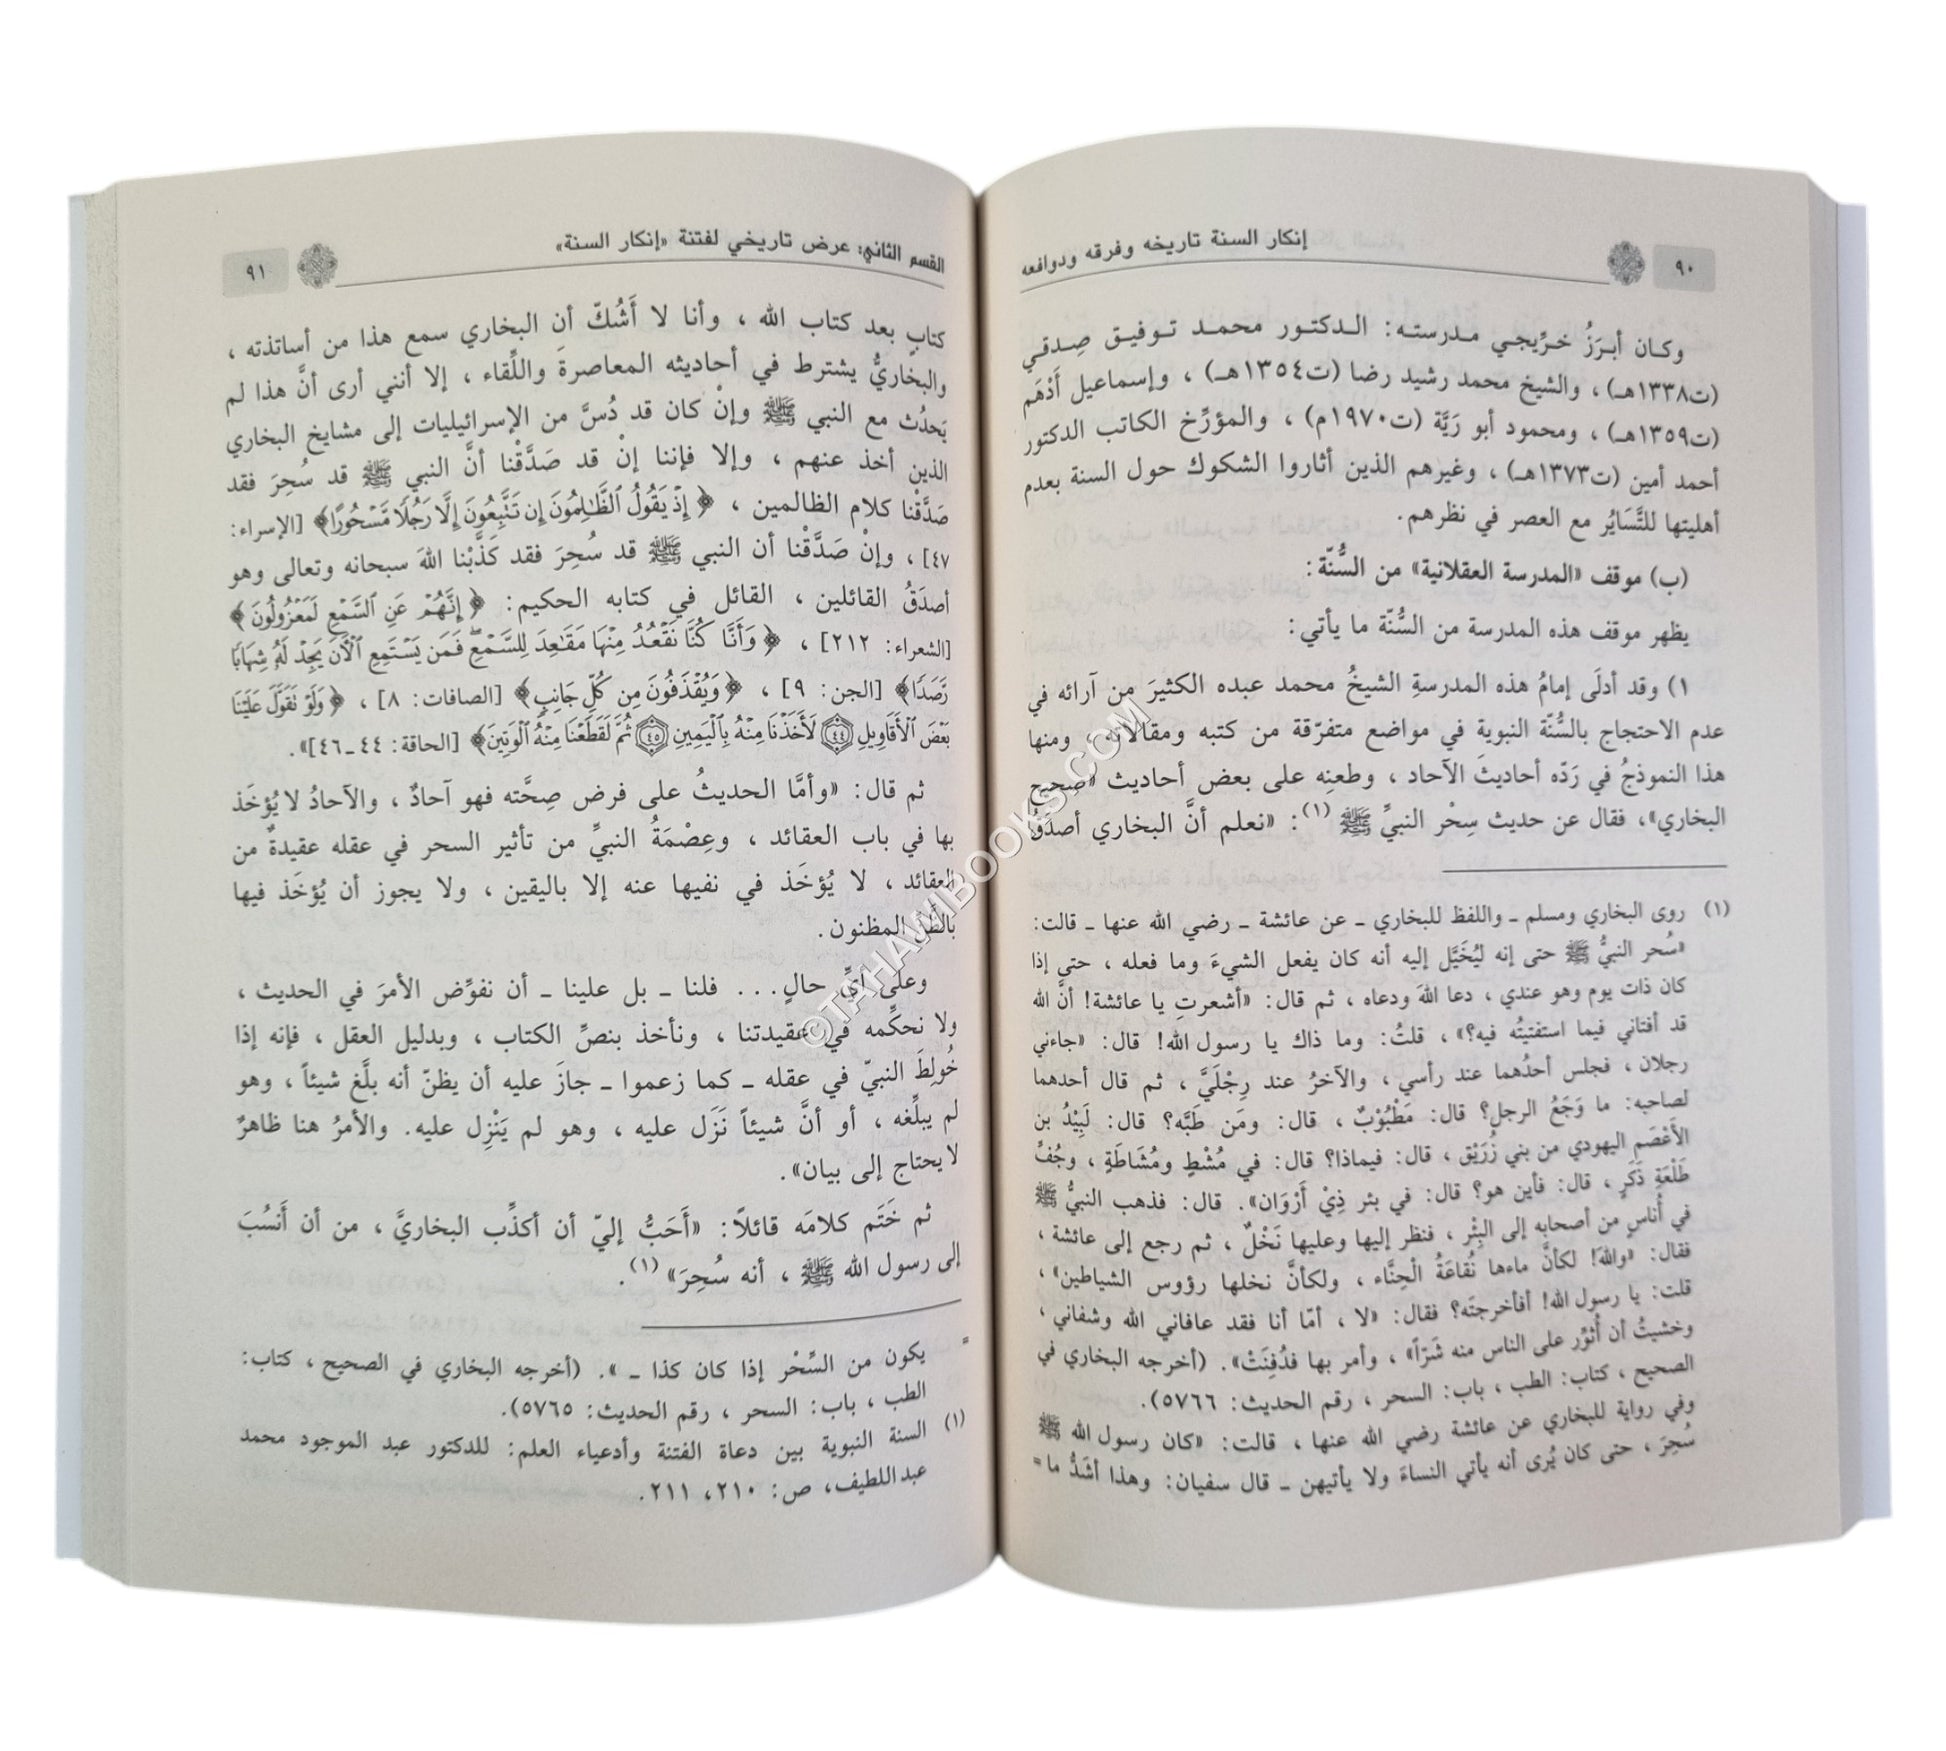 ٩٠
إنكار السنة تاريخه وفرقه ودوافعه
وكان أبرَزُ خرِّيجي مدرسته: الدكتور محمد توفيق صِدقي
(ت١٣٣٨هـ)، والشيخ محمد رشيد رضا (ت١٣٥٤هـ)، وإسماعيل أَدْهَم
(ت١٣٥٩هـ)، ومحمود أبو رَيَّة (ت١٩٧٠م)، والمؤرِّخ الكاتب الدكتور
أحمد أمين (ت١٣٧٣هـ)، وغيرهم الذين أثاروا الشكوك حول السنة بعدم
أهليتها للتَّسَايُر مع العصر في نظرهم.
(ب) موقف «المدرسة العقلانية» من السُّنّة:
يظهر موقف هذه المدرسة من السُّنّة ما يأتي:
١) وقد أدلَى إمامُ هذه المدرسةِ الشيخُ محمد عبده الكثيرَ من آرائه في
عدم الاحتجاج بالسُّنّة النبوية في مواضع متفرّقة من كتبه ومقالاته، ومنها
هذا النموذجُ في رَدّه أحاديثَ الآحاد، وطعنِه على بعض أحاديث «صحيح
البخاري»، فقال عن حديث سِحْر النبيِّ ﷺ (١): «نعلم أنَّ البخاري أصدَقُ
(١) روى البخاري ومسلم ـ واللفظ للبخاري ـ عن عائشة ـ رضي الله عنها ـ قالت:
«سُحر النبيُّ ﷺ حتى إنه ليُخَيَّل إليه أنه كان يفعل الشيءَ وما فعله، حتى إذا
كان ذات يوم وهو عندي، دعا اللهَ ودعاه، ثم قال: «أشعرتِ يا عائشة! أنَّ الله
قد أفتاني فيما استفتيتُه فيه؟»، قلتُ: وما ذاك يا رسول الله! قال: «جاءني
رجلان، فجلس أحدُهما عند رأسي، والآخرُ عند رِجْلَيَّ، ثم قال أحدهما
لصاحبه: ما وَجَعُ الرجلِ؟ قال: مَطْبُوْبٌ، قال: ومَن طَبَّه؟ قال: لَبِيْدُ بن
الأَعْصَم اليهودي من بني زُرَيْق، قال: فيماذا؟ قال: في مُشْطٍ ومُشَاطَةٍ، وجُفِّ
طَلْعَةِ ذَكَرٍ، قال: فأين هو؟ قال: في بئر ذِيْ أَرْوَان». قال: فذهب النبيُّ ﷺ
في أُناسٍ من أصحابه إلى البِئْر، فنظر إليها وعليها نَخْلٌ، ثم رجع إلى عائشة،
فقال: «واللهَ! لكأنَّ ماءها نُقاعَةُ الْحِنَّاء، ولكأنَّ نخلها رؤوس الشياطين»،
قلت: يا رسول الله! أفأخرجتَه؟ فقال: «لا، أمّا أنا فقد عافاني الله وشفاني،
وخشيتُ أن أُثوِّر على الناس منه شَرّاً»، وأمر بها فدُفِنَتْ». (أخرجه البخاري في
الصحيح، كتاب: الطب، باب: السحر، رقم الحديث: ٥٧٦٦).
وفي رواية للبخاري عن عائشة رضي الله عنها، قالت: «كان رسول الله ﷺ
سُحِرَ، حتى كان يُرى أنه يأتي النساءَ ولا يأتيهن ـ قال سفيان: وهذا أشَدُّ ما =
القسم الثاني: عرض تاريخي لفتنة «إنكار السنة»
٩١
كتابٍ بعد كتاب الله، وأنا لا أَشُكّ أن البخاري سمع هذا من أساتذته،
والبخاريُّ يشترط في أحاديثه المعاصرةَ واللِّقاء، إلا أنني أرى أنَّ هذا لم
يَحدُث مع النبي ﷺ وإنْ كان قد دُسَّ من الإسرائيليات إلى مشايخ البخاري
الذين أخذ عنهم، وإلا فإننا إنْ قد صَدَّقْنا أنَّ النبي ﷺ قد سُحِرَ فقد
صَدَّقْنا كلام الظالمين، ﴿إِذْ يَقُولُ ٱلظَّٰلِمُونَ إِن تَتَّبِعُونَ إِلَّا رَجُلًا مَّسْحُورًا﴾ [الإسراء:
٤٧]، وإنْ صَدَّقْنا أن النبي ﷺ قد سُحِرَ فقد كَذَّبْنا اللهَ سبحانه وتعالى وهو
أصدَقُ القائلين، القائل في كتابه الحكيم: ﴿إِنَّهُمْ عَنِ ٱلسَّمْعِ لَمَعْزُولُونَ﴾
[الشعراء: ٢١٢]، ﴿وَأَنَّا كُنَّا نَقْعُدُ مِنْهَا مَقَٰعِدَ لِلسَّمْعِ ۖ فَمَن يَسْتَمِعِ ٱلْءَانَ يَجِدْ لَهُۥ شِهَابًا
رَّصَدًا﴾ [الجن: ٩]، ﴿وَيُقْذَفُونَ مِن كُلِّ جَانِبٍ﴾ [الصافات: ٨]، ﴿وَلَوْ تَقَوَّلَ عَلَيْنَا
بَعْضَ ٱلْأَقَاوِيلِ ٤٤ لَأَخَذْنَا مِنْهُ بِٱلْيَمِينِ ٤٥ ثُمَّ لَقَطَعْنَا مِنْهُ ٱلْوَتِينَ﴾ [الحاقة: ٤٤ـ٤٦]».
ثم قال: «وأمَّا الحديثُ على فرض صِحَّته فهو آحادٌ، والآحادُ لا يُؤخَذ
بها في باب العقائد، وعِصْمَةُ النبيِّ من تأثير السحر في عقله عقيدةٌ من
العقائد، لا يُؤخَذ في نفيها عنه إلا باليقين، ولا يجوز أن يُؤخَذ فيها
بالظَّنِّ المظنون.
وعلى أيِّ حالٍ... فلنا ـ بل علينا ـ أن نفوِّض الأمرَ في الحديث،
ولا نحكِّمه في عقيدتنا، ونأخذ بنصِّ الكتاب، وبدليل العقل، فإنه إذا
خُولِطَ النبيّ في عقله ـ كما زعموا ـ جازَ عليه أن يظنّ أنه بلَّغ شيئاً، وهو
لم يبلِّغه، أو أنَّ شيئاً نَزَل عليه، وهو لم يَنْزِل عليه. والأمرُ هنا ظاهرٌ
لا يحتاج إلى بيان».
ثم خَتَم كلامَه قائلاً: «أَحَبُّ إليّ أن أكذِّب البخاريَّ، من أن أَنسُبَ
إلى رسول الله ﷺ، أنه سُحِرَ» (١).
= يكون من السِّحْر إذا كان كذا ـ». (أخرجه البخاري في الصحيح، كتاب:
الطب، باب: السحر، رقم الحديث: ٥٧٦٥).
(١) السنة النبوية بين دعاة الفتنة وأدعياء العلم: للدكتور عبد الموجود محمد
عبد اللطيف، ص: ٢١٠، ٢١١.
©TAHAWIBOOKS.COM